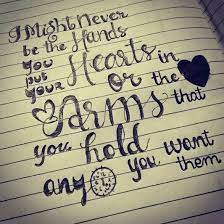 I Might Never
be the Hands
you
put
your
Hearts in
or the
Arms that
you hold
any you want
them